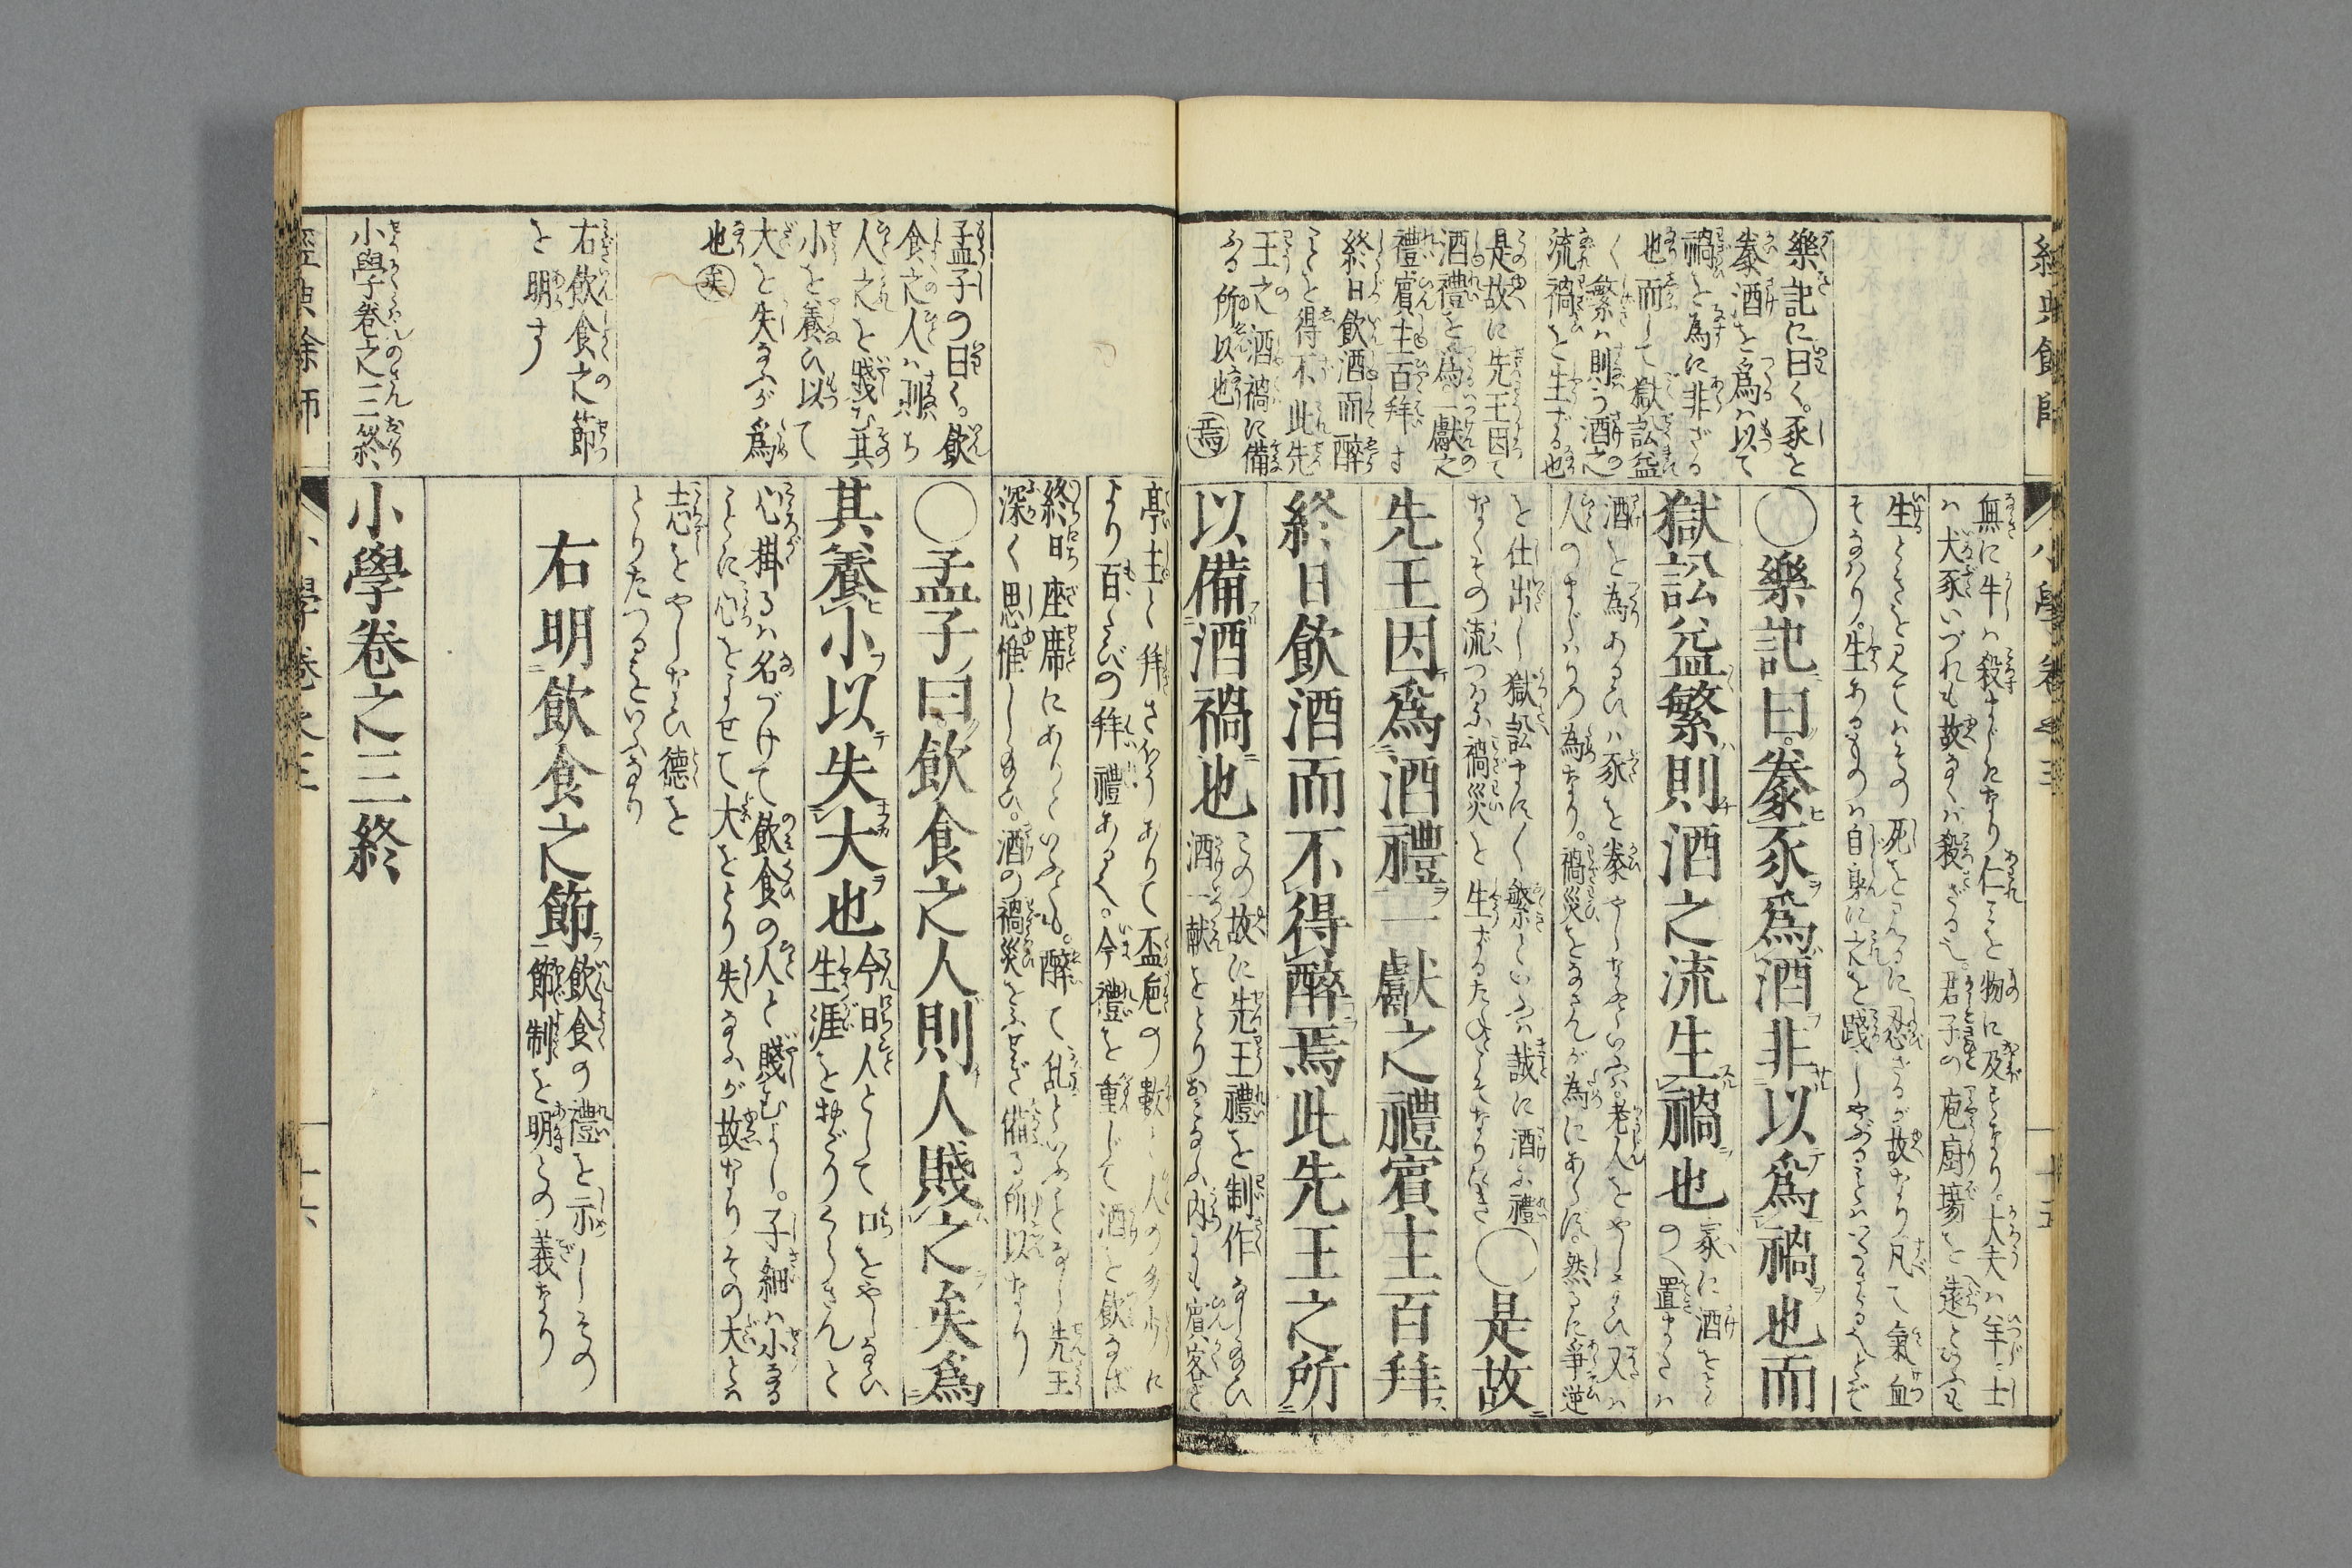 經典餘師
小學卷之三
十五
樂記に曰く。豕を
豢酒を爲は以て
禍を為に非ざる
也而して獄訟益
〱繁は則ち酒之
流禍を生ずる也
是故に先王因て
酒禮を為一獻之
禮賓主百拜す
終日飲酒而醉
ことを得不此先
王之酒禍に備
ふる所以也焉
無に牛は殺すまじきなり仁ことを物に及すなり。大夫は羊士
は犬豕いづれも故なくは殺ざる也。君子の庖廚場を遠といふも
生ときを見てはその死をみるに忍ざるが故なり凡て氣血
そなはり。生あるものは自身に之を踐しやぶることはせざるべしとぞ
〇樂記曰。豢豕爲酒非以爲禍也而
獄訟益繁則酒之流生禍也
家に酒を
の〱置まうくは
酒を為あるひは豕を豢やしなふといふは。老人をやしなひ又は
人のまじはりの為なり。禍災をなさんが為にあらず。然るに爭逆
を仕出し獄訟ます〱繁といふは誠に酒に禮
なくその流つたふ禍災を生ずるためしそなりにき
〇是故
先王因爲酒禮一獻之禮賓主百拜
終日飲酒而不得醉焉此先王之所
以備酒禍也
この故に先王禮を制作なし給ひ
酒一献をとりおこなふ内にも賓客と
孟子の曰く。飲
食之人は則ち
人之を賤む其
小を養ひ以て
大を失なふが爲
也矣
右飲食之節
を明す
小學卷之三終
亭主と拜さほうありて盃巵の數も人の多少に
より百たびの拜禮あるべし。今禮を重じて酒を飲なば
終日座席にありといふとも。醉て乱といふことなし先王
深く思惟し給ひ。酒の禍災をふせぎ備る所以なり
〇孟子曰。飲食之人則人賤之矣爲
其養小以失大也
今日人として口をやしなひ
生涯をむどうくらさんと
心掛るは名づけて飲食の人と賤むべし。子細は小なる
ことに心をよせて大をとり失なふが故なりその大とは
志をやしなひ德を
とりたつるをいふなり
右明飲食之節
飲食の禮を示しその
節制を明との義なり
小學卷之三終
經典餘師
小學卷之三
十六